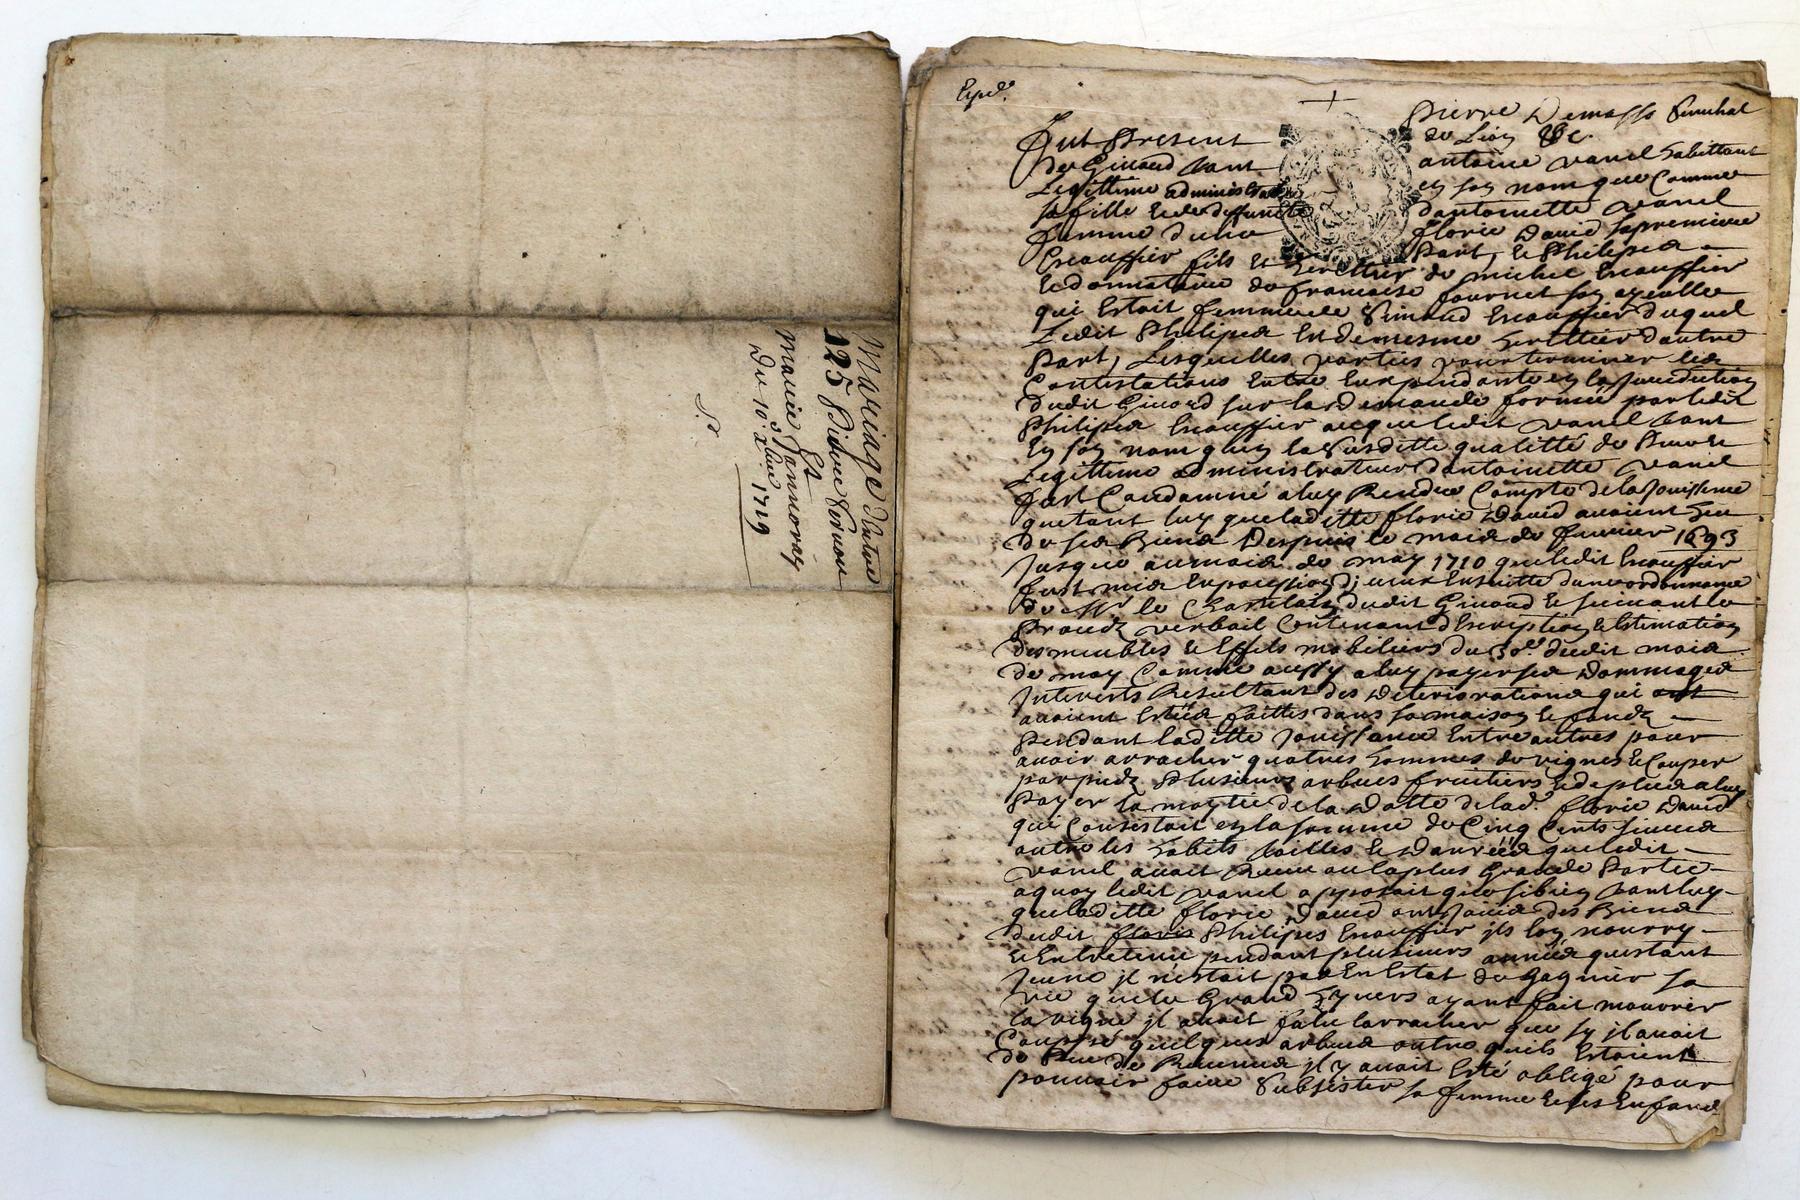 Mariage Entre
125 Pierre Vernou
Et
Marie Jannoray
Du 10.e Xbre 1719
S.
Expd.
Pierre Demasso Senechal
de Lion &c.
Fut Present antoine vanel habittant
de Givord tant en son nom que Comme
Legittime administrateur dantoinette vanel
sa fille Et de deffuncte florie David sa premiere
femme dune Part, Et Philipes
Escauffier fils Et herittier de michel Escauffier
Et donnataire de francoise fournet son ayeulle
qui Estait femme de Simond Escauffier duquel
Ledit Philipes Est de mesme herittier dautre
Part, Lesquelles parties pour terminer les
Contestations Entre Eux pendante en la Jurediction
dudit Givord sur la Demande formée par ledit
Philipes Escauffier acque ledit vanel tant
En son nom quen la Susditte qualitté de Perre
Legittime administrateur dantoinette vanel
fust Condamné a luy Rendre Compte de la Jouissence
que tant luy que laditte florie David avaient heu
de ses Biens Despuis le mois de feuvrier 1693
Jusques au mois de may 1710 que ledit Escauffier
fust mis En possession dyceux Ensuitte dune ordonnance
de Mr. le Chastelain dudit Givord Et suivant le
Procedz verbail Contenant descryption Et Estimation
des meubles Et Effets mobiliers du 30e. dudit mois
de may Comme aussy a luy payer ses Dommages
Interests Resultant des Deteriorations qui
avaient Estées faittes dans sa maison Et fondz
pendant laditte Jouissance Entre autres pour
avoir arracher quatres hommes de vignes Et Couper
par piedz Plusieurs arbres fruitiers Et de plus a luy
Payer la moytié de la Dotte de lad. florie David
qui Consistait en la somme de Cinq Cents livres
outre les habits Et Danrées que ledit
vanel avait Receu en la plus Grande Partie
aquoy ledit vanel apposait que sibien tant luy
que laditte florie David ont Jouis des Biens
dudit florie Philipes Escauffier jls lon nourry
Et Entretenu pendant plusieurs années questant
Jeune jl nestait pas En Estat de Gagnier sa
vie que le Grand hyvers ayant fait mourrir
la vigne jl avait falu larracher que sy jl avait
Couppé quelques arbres outre quils Estaient
de Peu de Revenus jl y avait Esté obligé pour
pouvoir faire Subsister sa femme Et ses Enfans